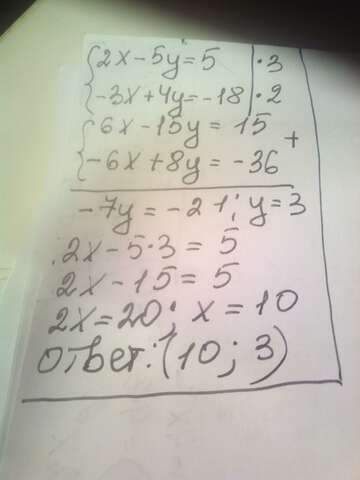 {2x-5y=5 |·3
{-3x+4y=-18 |·2
{6x-15y=15
{-6x+8y=-36 +
-7y=-21; y=3
2x-5·3=5
2x-15=5
2x=20; x=10
ответ: (10; 3)